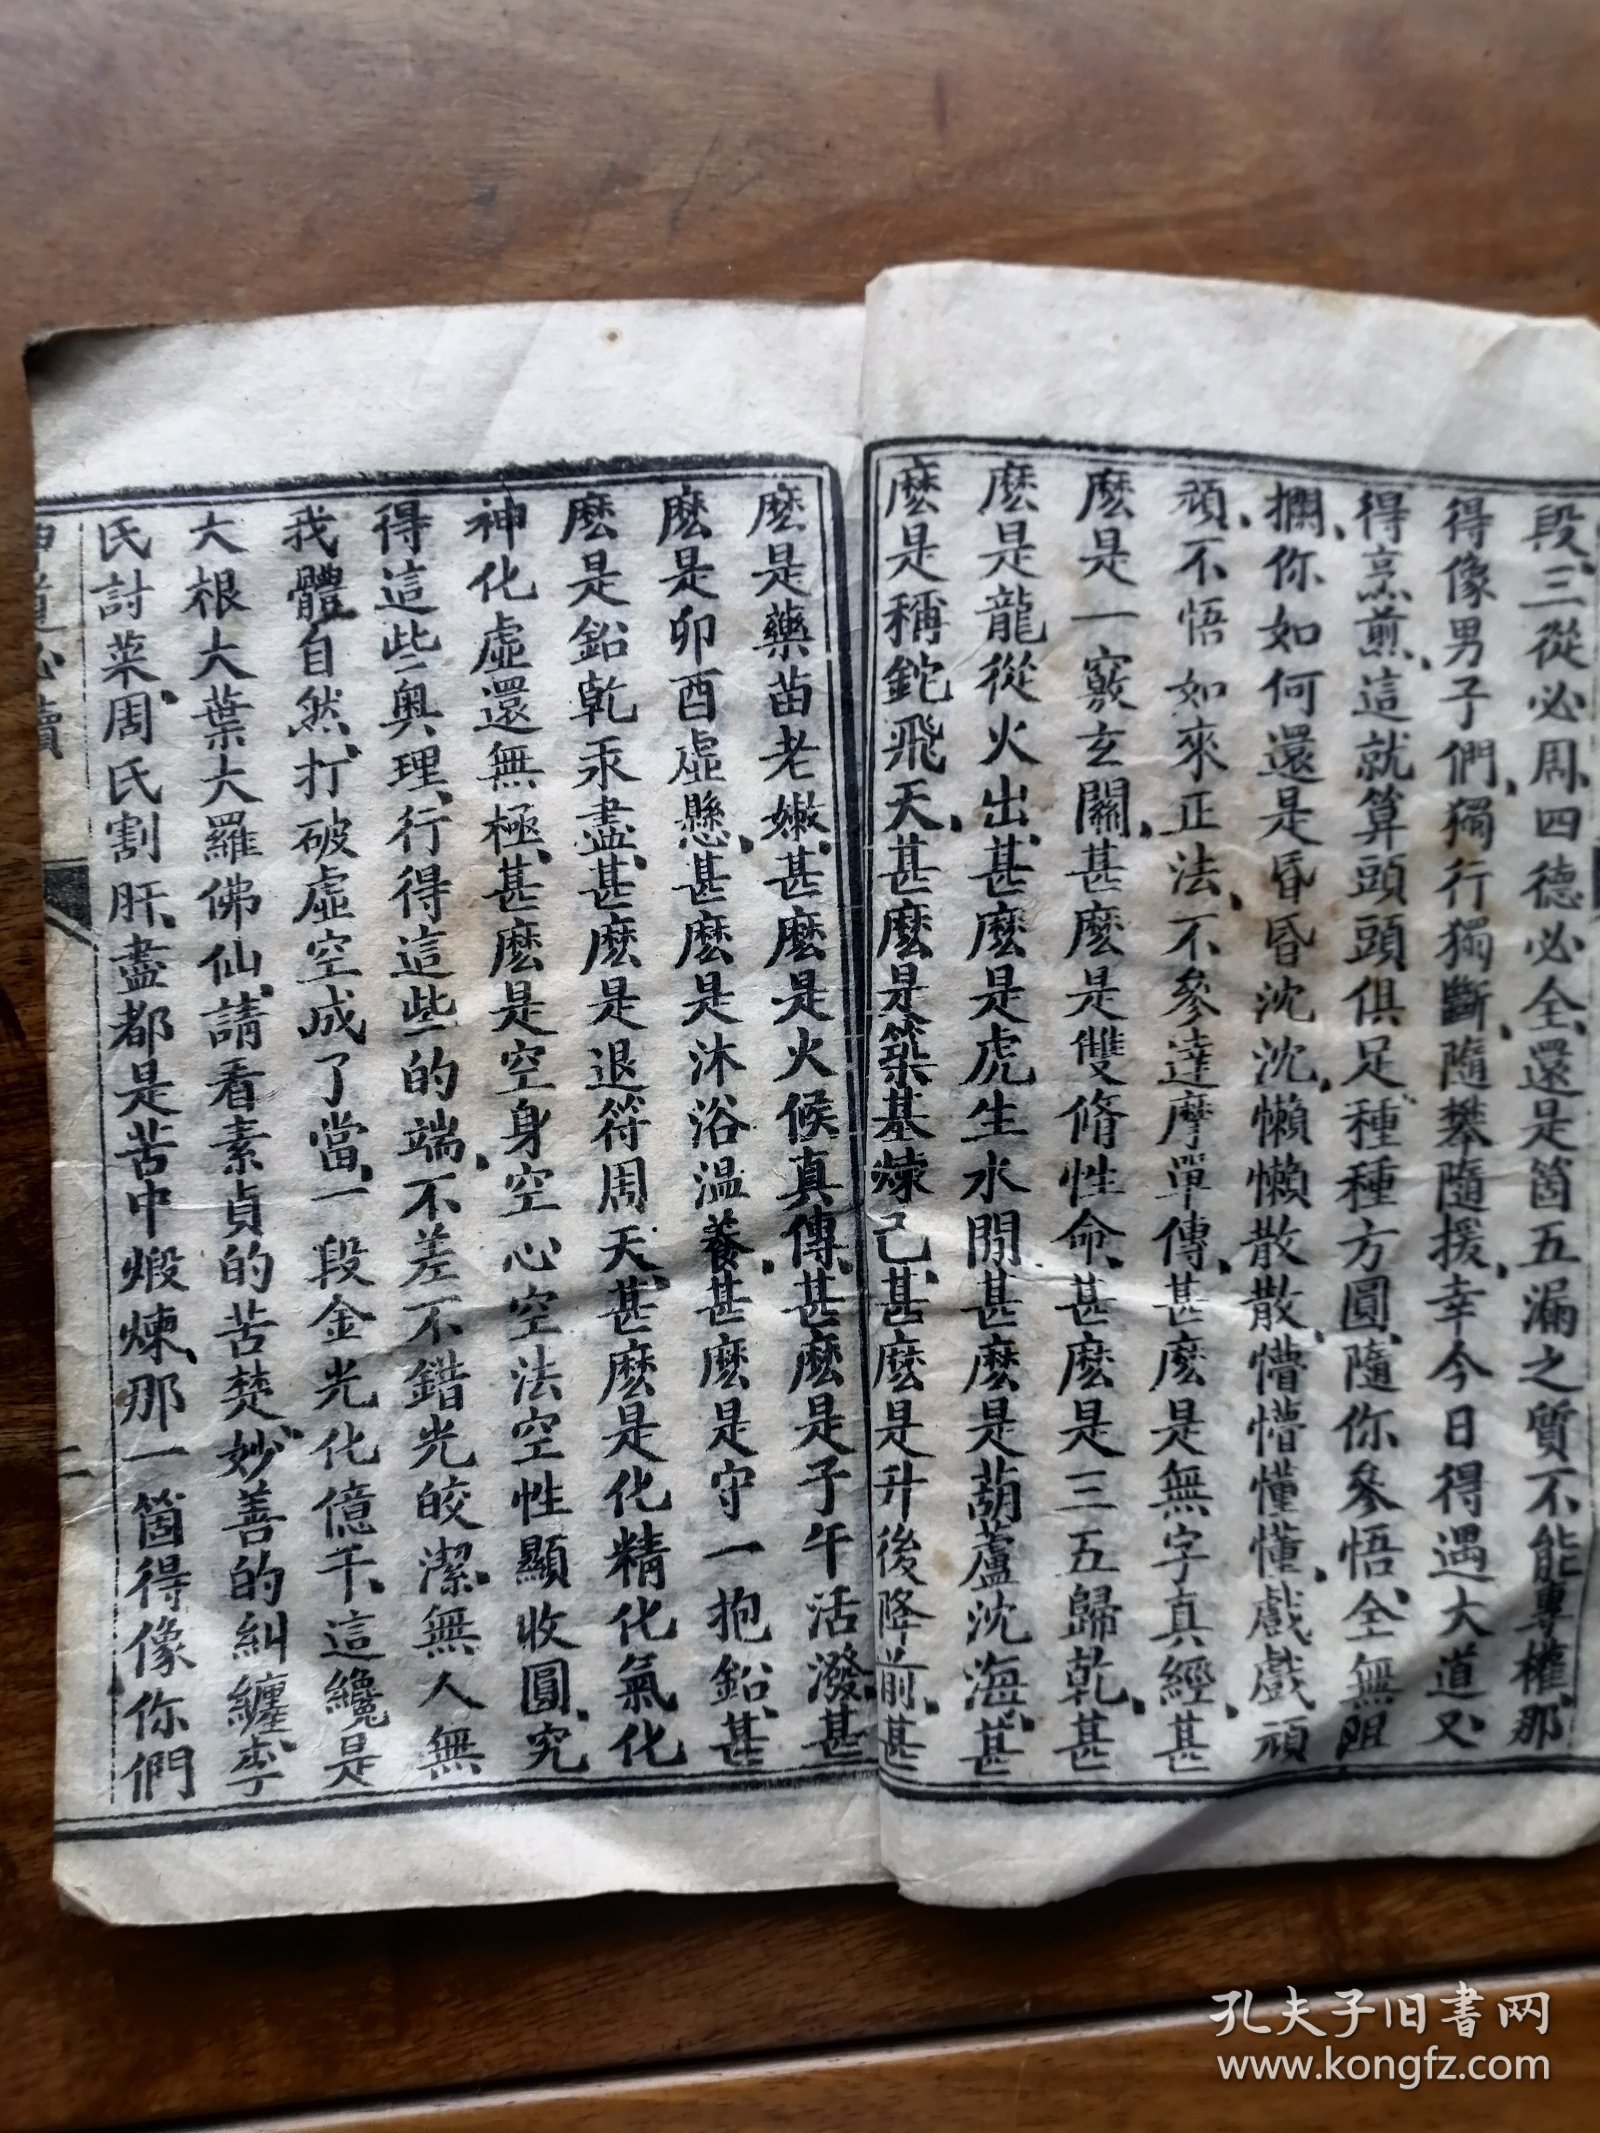 段、三從必周、四德必全、還是箇五漏之質不能專權、那
得像男子們、獨行獨斷、隨攀隨援、幸今日得遇大道、又
得烹煎、這就算頭頭俱足、種種方圓、隨你參悟、全無阻
攔、你如何還是昏昏沈沈、懶懶散散、懵懵懂懂、戲戲頑
頑、不悟如來正法、不參達摩單傳、甚麽是無字真經、甚
麽是一竅玄關、甚麽是雙脩性命、甚麽是三五歸乾、甚
麽是龍從火出、甚麽是虎生水閒、甚麽是葫蘆沈海、甚
麽是稱鉈飛天、甚麽是築基煉己、甚麽是升後降前、甚
麽是藥苗老嫩、甚麽是火候真傳、甚麽是子午活潑、甚
麽是卯酉虛懸、甚麽是沐浴温養、甚麽是守一抱鉛、甚
麽是鉛乾汞盡、甚麽是退符周天、甚麽是化精化氣化
神化虛還無極、甚麽是空身空心空法空性顯收圓、究
得這些奧理、行得這些的端、不差不錯光皎潔、無人無
我體自然、打破虛空成了當、一段金光化億千、這纔是
大根大葉大羅佛仙、請看素貞的苦楚、妙善的糾纏、李
氏討菜、周氏割肝、盡都是苦中煅煉、那一箇得像你們
必讀
二
孔夫子旧書网
www.kongfz.com